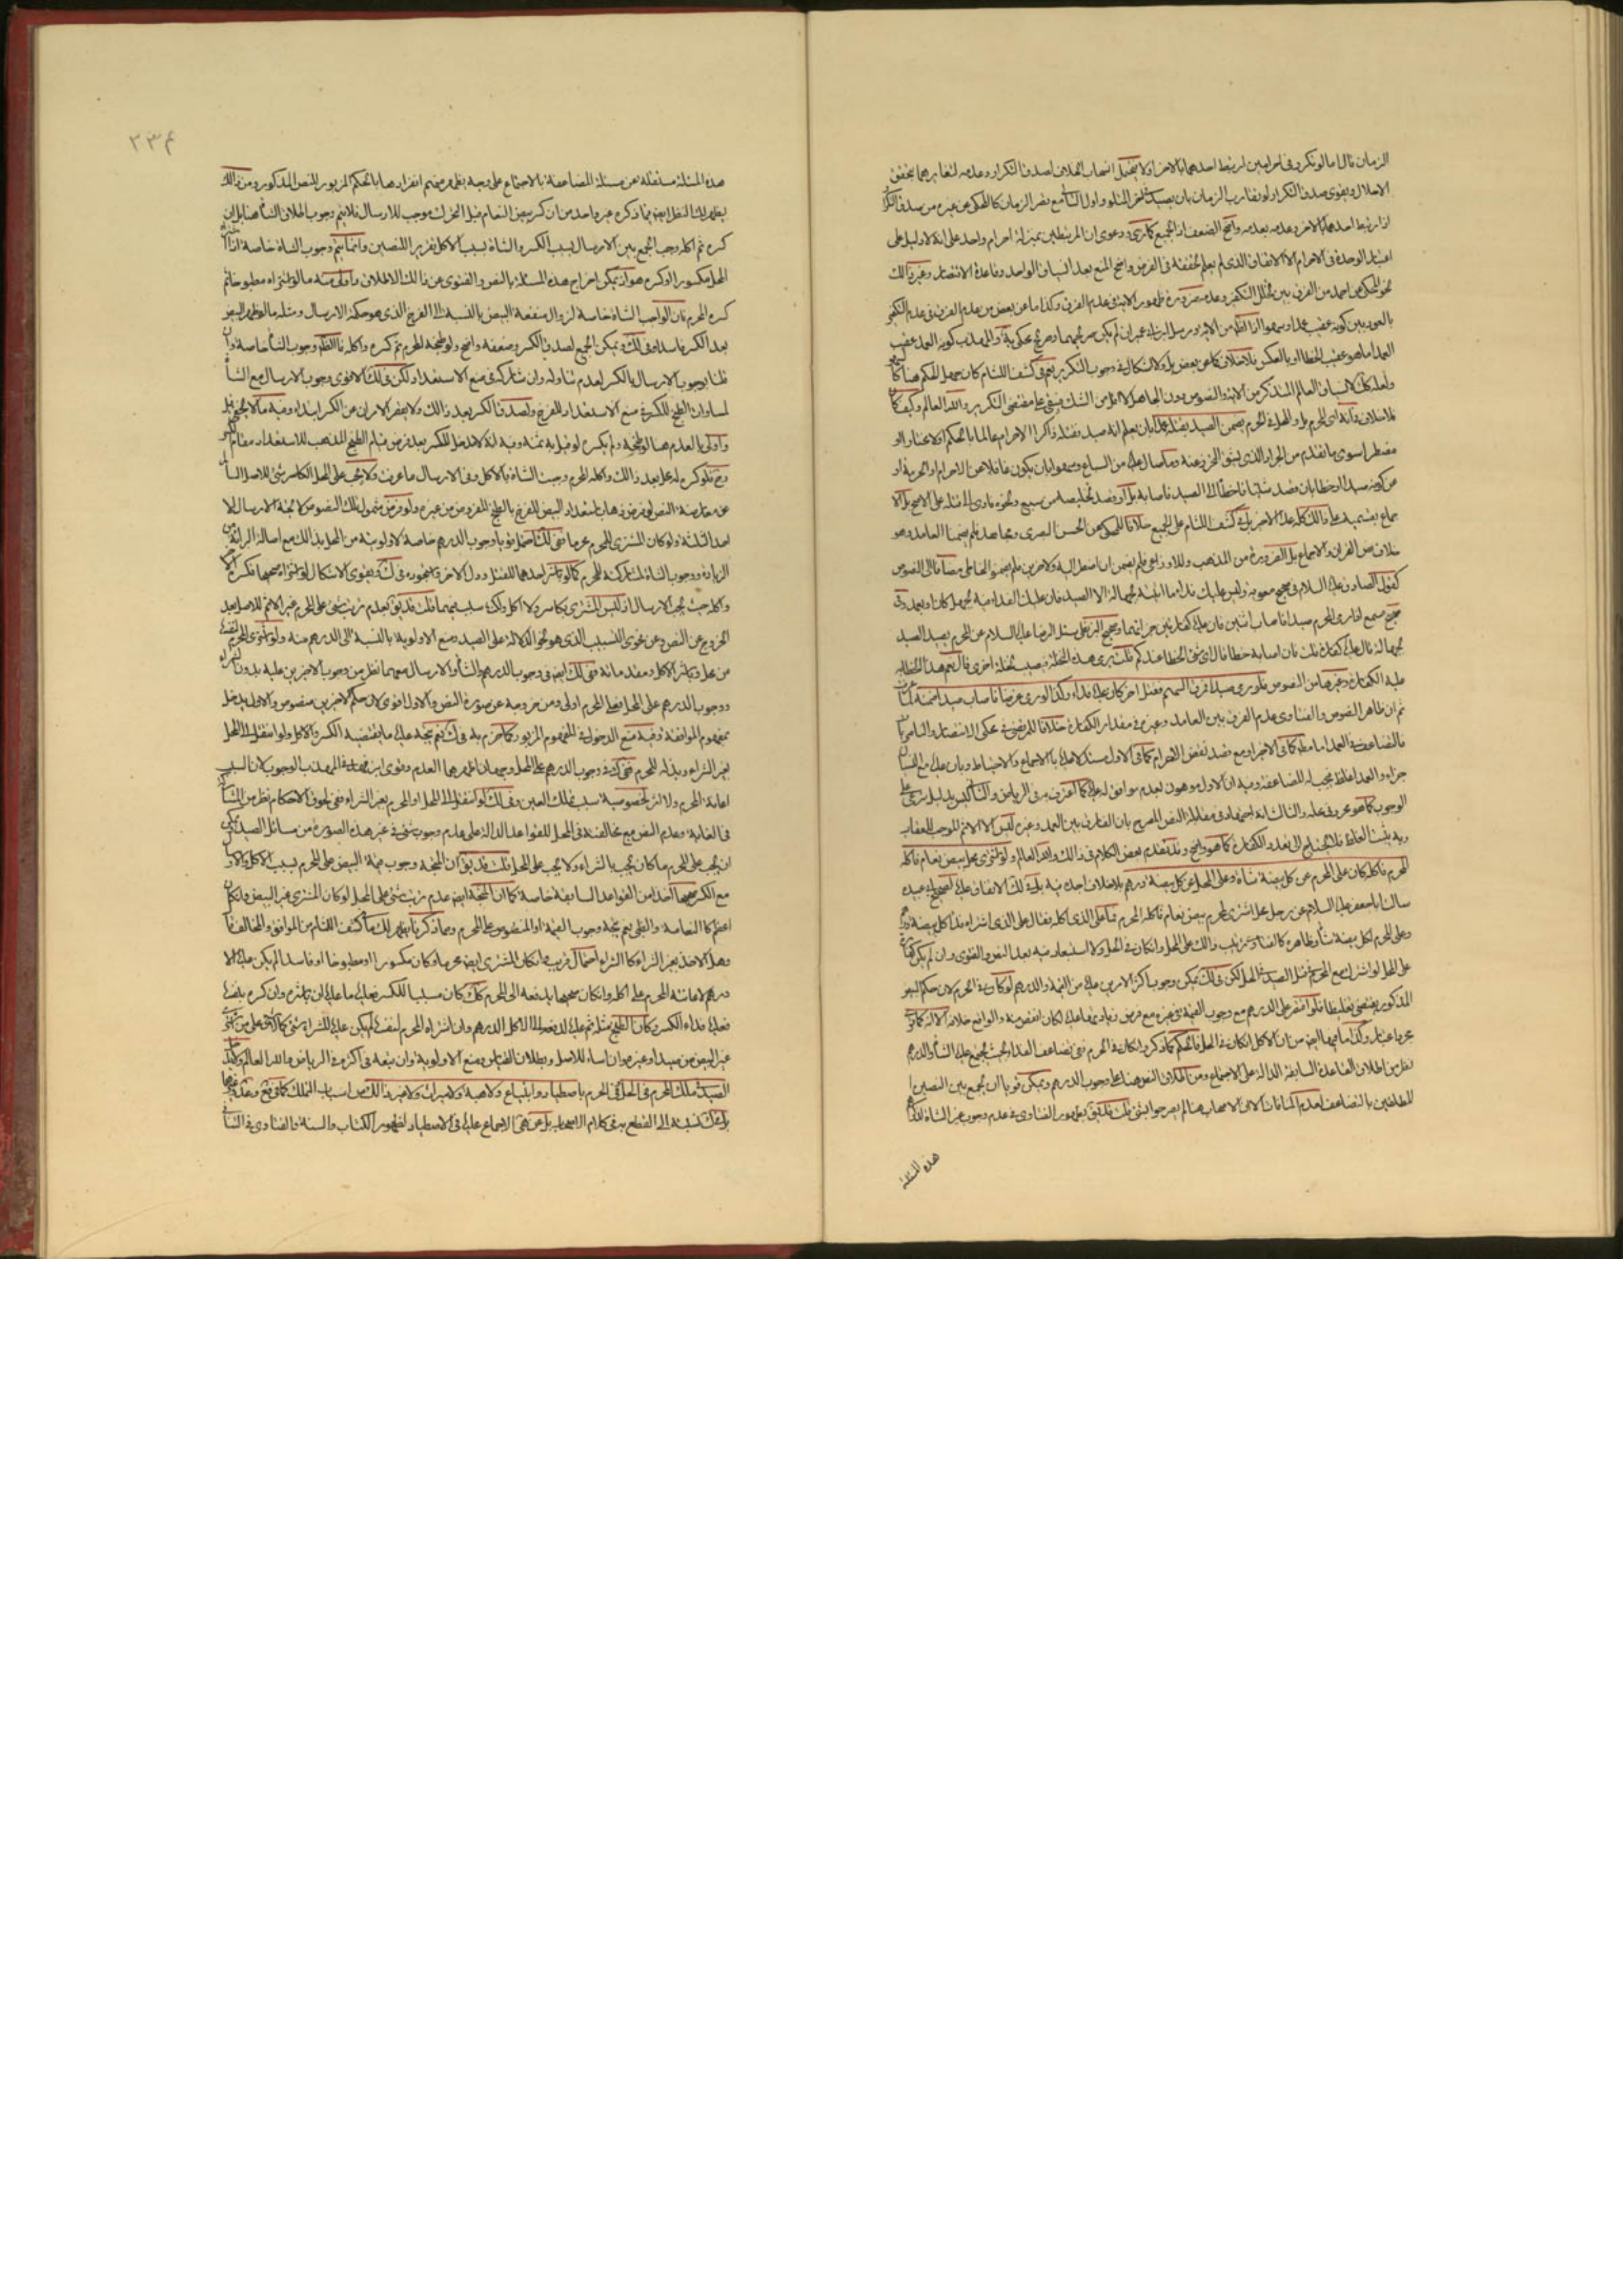 الزمان قال اما لو تكرر فى احرامين ارتبط احدهما بالاخر اولا يحتمل انسحاب الخلاف لصدق التكرار وعدمه لتغايرهما بتحقق
الاحلال ويقوى صدق التكرار لو تقارب الزمان بان يصيد فى اخر المتلو واول التالى مع قصر الزمان كالمحكى عن غيره من صدق التكرار
اذا ارتبط احدهما بالاخر وعدمه بعدمه واضح الضعف اذ الجميع كما ترى ودعوى ان المرتبطين بمنزلة احرام واحد على انه لا دليل على
اعتبار الوحدة فى الاحرام الا الاتفاق الذى لم يعلم تحققه فى الفرض واضح المنع بعد السياق الواحد وقاعدة الاقتصار وغير ذلك
نحو المحكى عن احمد من الفرق بين تخلل التكفير وعدمه ضرورة ظهور الاية فى عدم الفرق وكذا ما عن بعض من عدم الفرق فى عدم التكفير
بالعود بين كونه عقيب عمد او سهو اذ الظاهر من الاية ومرسل ابن ابى عمير ان لم يكن صريحهما وصريح محكى ية والمهذب كونه العمد عقيب
العمد اما هو عقيب الخطا او بالعكس فلا خلاف كما عن بعض بل ولا اشكال فى وجوب التكرير نعم فى كشف اللثام كان جهل الحكم هنا كالسهو
ولعله كذلك لانسياق العالم المتذكر من الاية والنصوص دون الجاهل لا اقل من الشك فيبقى على مقتضى التكرير والله العالم وكيف كان
فلا خلاف فى انه اى المحرم بل والمحل فى الحرم يضمن الصيد بقتله عمدا بان يعلم انه صيد فقتله ذاكرا الاحرام عالما بالحكم اولا مختارا او
مضطرا سوى ما تقدم من الجراد الذى يشق التحرز عنه وما صال عليه من السباع وسهوا بان يكون غافلا عن الاحرام او الحرمة او
عن كونه صيدا او خطا بان قصد شيئا فاخطا الى الصيد فاصابه بل او قصد تخليصه من سبع ونحوه فادى الى قتله على الاصح بلا
جماع بقسميه على ذلك كله عدا الاخير بل فى كشف اللثام على الجميع خلافا للمحكى عن الحسن البصرى ومجاهد فلم يضمنا العامد وهو
خلاف نص القران والاجماع بل الضرورة من المذهب وللاوزاعى فلم يضمن ان اضطر اليه ولاخرين فلم يضمنوا الخاطى مضافا الى النصوص
كقول الصادق عليه السلام فى صحيح معوية وليس عليك فداء ما اتيته بجهالة الا الصيد فان عليك الفداء فيه بجهل كان او بعمد وفى
صحيح مسمع اذا رمى المحرم صيدا فاصاب اثنين فان عليه كفارتين جزائهما وصحيح البزنطى سئل الرضا عليه السلام عن المحرم يصيد الصيد
بجهالة قال عليه كفارة قلت فان اصابه خطا قال اى شئ الخطا عندكم قلت يرمى هذه النخلة فيصيب نخلة اخرى قال نعم هذا الخطا
عليه الكفارة وغيرها من النصوص فلو رمى صيدا فمرق السهم فقتل اخر كان عليه فداء وكذا لو رمى غرضا فاصاب صيدا ضمنه
ثم ان ظاهر النصوص والفتاوى عدم الفرق بين العامد وغيره فى مقدار الكفارة خلافا للمرتضى فى محكى الانتصار والناصريات
فالتضاعف فى العمد اما مطلقا كما فى الاخير او مع قصد نقض الاحرام كما فى الاول مستدلا عليه بالاجماع والاحتياط وبان عليه مع النسيان
جزاء والعمد اغلظ فيجب له المضاعفة وفيه ان الاول موهون بعدم موافق له عليه كما اعترف به فى الرياض والثانى ليس بدليل شرعى على
الوجوب كما هو محرر فى محله والثالث انه اجتهاد فى مقابلة النص المصرح بان الفارق بين العمد وغيره ليس الا الاثم الموجب للعقاب
وبه يثبت الغلظ فلا يحتاج الى تعدد الكفارة كما هو واضح وقد تقدم بعض الكلام فى ذلك والله العالم ولو اشترى محل بيض نعام فاكله
المحرم فاكله كان على المحرم عن كل بيضة شاة وعلى المحل عن كل بيضة درهم بلا خلاف اجده فيه بل فى لك الاتفاق عليه لصحيح ابى عبيدة
سالت ابا جعفر عليه السلام عن رجل محل اشترى لمحرم بيض نعام فاكله المحرم فما على الذى اكله فقال على الذى اشتراه فداء كل بيضة درهم
وعلى المحرم لكل بيضة شاة وظاهره كالفتاوى ترتب ذلك على المحل وان كان فى الحل ولا استبعاد فيه بعد النص والفتوى وان لم يكن كفارة
على المحل لو اشترك مع المحرم فى قتل الصيد فى الحل لكن فى لك يمكن وجوب اكثر الامرين عليه من القيمة والدرهم لو كان فى الحرم لان حكم البيض
المذكور يقتضى تغليظا فلو اقتصر على الدرهم مع وجوب القيمة فى غيره مع فرض زيادتها عليه لكان انقص منه والواقع خلافه الا انه كما ترى
مجرد اعتبار وكذا ما فيها ايضا من ان الاكل ان كان فى الحل فالحكم كما ذكر وان كان فى الحرم ففى تضاعف الفداء بحيث يجتمع عليه الشاة والدرهم
نظر من اطلاق القاعدة السابقة الدالة على الاجتماع ومن اطلاق النص هنا على وجوب الدرهم ويمكن قويا ان يجمع بين النصين
المطلقين بالتضاعف لعدم المنافاة الا ان الاصحاب هنا لم يصرحوا بشئ قلت قد يق بظهور الفتاوى فى عدم وجوب غير الشاة
هذه المسئلة
٢٣٤
هذه المسئلة مستقلة عن مسئلة المضاعفة بالاجتماع على وجه يظهر منهم انفرادها بالحكم المزبور للنص المذكور ومن ذلك
يظهر لك النظر ايضا فيما ذكره غير واحد من ان كسر بيض النعام قبل التحرك موجب للارسال فلا يتم وجوب اطلاق الشاة هنا بل ان
كسره ثم اكله وجب الجمع بين الارسال بسبب الكسر والشاة بسبب الاكل تقريرا للنصين وانما يتم وجوب الشاة خاصة اذا اشتراه
المحل مكسورا او كسره هو اذ يمكن اخراج هذه المسئلة بالنص والفتوى عن ذلك الاطلاق واولى منه ما لو اشتراه مطبوخا ثم
كسره المحرم فان الواجب الشاة خاصة لزوال منفعة البيض بالنسبة الى الفرخ الذى هو حكمة الارسال ومثله ما لو ظهر البيض
بعد الكسر فاسدا وفى لك ويمكن الجمع لصدق الكسر وضعفه واضح ولو طبخه المحرم ثم كسره واكله فالظاهر وجوب الشاة خاصة وان
قلنا بوجوب الارسال بالكسر لعدم تناوله وان شاركه فى منع الاستعداد ولكن فى لك الاقوى وجوب الارسال مع الشاة
لمساواة الطبخ للكسر فى منع الاستعداد للفرخ ولصدق الكسر بعد ذلك ولا يقصر الامران عن الكسر ابتداء وفيه ما لا يخفى بل
واولى بالعدم هنا لو طبخه ولم يكسره لو قيل به ثمة وفيه انه لا مدخل للكسر بعد فرض قيام الطبخ المذهب للاستعداد مقام الكسر
وح فلو كسره له محل بعد ذلك واكله المحرم وجبت الشاة بالاكل وفى الارسال ما عرفت ولا يجب على المحل الكاسر شئ للاصل السالم
عن معارضة النص لو فرض ذهاب استعداد البيض للفرخ بالطبخ المفروض من غيره ولو فرض شمول تلك النصوص كالاتجه الارسال لا
احد الثلثة ولو كان المشترى للمحرم محرما ففى لك احتمل قويا وجوب الدرهم خاصة لاولويته من المحل بذلك مع اصالة البرائة من
الزيادة ووجوب الشاة لمشاركته للمحرم كما لو باشر احدهما القتل ودل الاخر ونحوه فى لك ويقوى الاشكال لو اشتراه صحيحا فكسره المحرم
واكله حيث يجب الارسال اذ ليس المشترى بكاسر ولا اكل ولكنه سبب فيهما قلت قد يق بعدم ترتب شئ على المحرم غير الاثم للاصل بعد
الخروج عن النص وعن نحوى التسبيب الذى هو نحو الدلالة على الصيد ومنع الاولوية بالنسبة الى الدرهم منه ولو اشترى المحرم لنفسه
من محل وباشر الاكل ومقدماته ففى لك ايضا فى وجوب الدرهم والشاة او الارسال معهما نظر من وجوب الاخيرين عليه بدون الشراء
ووجوب الدرهم على المحل فعلى المحرم اولى ومن خروجه عن صورة النص والاول اقوى لان حكم الاخيرين منصوص والاول يدخل
بمفهوم الموافقة وفيه منع الدخول فى المفهوم المزبور كما جزم به فى لك نعم يتجه عليه ما يقتضيه الكسر والاكل ولو انتقل الى المحل
بغير الشراء وبذله للمحرم ففى لك فى وجوب الدرهم على المحل وجهان اظهرهما العدم وقوى ابن فهد فى المهذب الوجوب لان السبب
اعانة المحرم ولا اثر لخصوصية سبب تملك العين وفى لك لو انتقل الى المحل او المحرم بغير الشراء ففى لحوق الاحكام نظر من الشك
فى الغاية وعدم النص مع مخالفته فى المحل للقواعد الدالة على عدم وجوب شئ فى غير هذه الصورة من مسائل الصيد لكن
ان يجب على المحرم ما كان يجب بالشراء ولا يجب على المحل قلت قد يق ان المتجه وجوب قيمة البيض على المحرم بسبب الاكل والارسال
مع الكسر صحيحا اخذا من القواعد السابقة خاصة كما ان المتجه ايضا عدم ترتب شئ على المحل لو كان المشترى غير البيض ولو كان
اعظم كالنعامة والظبى نعم يتجه وجوب القيمة او المنصوص على المحرم ومما ذكرنا يظهر لك ما فى كشف اللثام من الموافق والمخالف قال
وهل الاخذ بغير الشراء كالشراء احتمال قريب وان كان المشترى ايضا محرما وكان مكسورا او مطبوخا او فاسدا لم يكن عليه الا
درهم لاعانته المحرم على اكله وان كان صحيحا يدفعه الى المحرم كذلك كان مسببا للكسر فعليه ما عليه ان باشره وان كسره بنفسه
فعليه فداء الكسر وكان الطبخ مثله ثم عليه لدفعه الى الاكل الدرهم وان اشتراه المحرم لنفسه لم يكن عليه للشراء شئ كما لا شئ على من اشترى
غير البيض من صيد او غيره وان اساء للاصل وبطلان القياس ومنع الاولوية وان تبعه فى اكثره فى الرياض والله العالم ولا يدخل
الصيد فى ملك المحرم فى الحل او فى الحرم باصطياد ولا ابتياع ولا هبة ولا ميراث ولا غير ذلك من اسباب التملك كما فى فع وعد وغيرها
بل فى لك نسبته الى القطع به فى كلام الاصحاب بل عن هى الاجماع عليه فى الاصطياد لظهور الكتاب والسنة والفتاوى فى الثانى